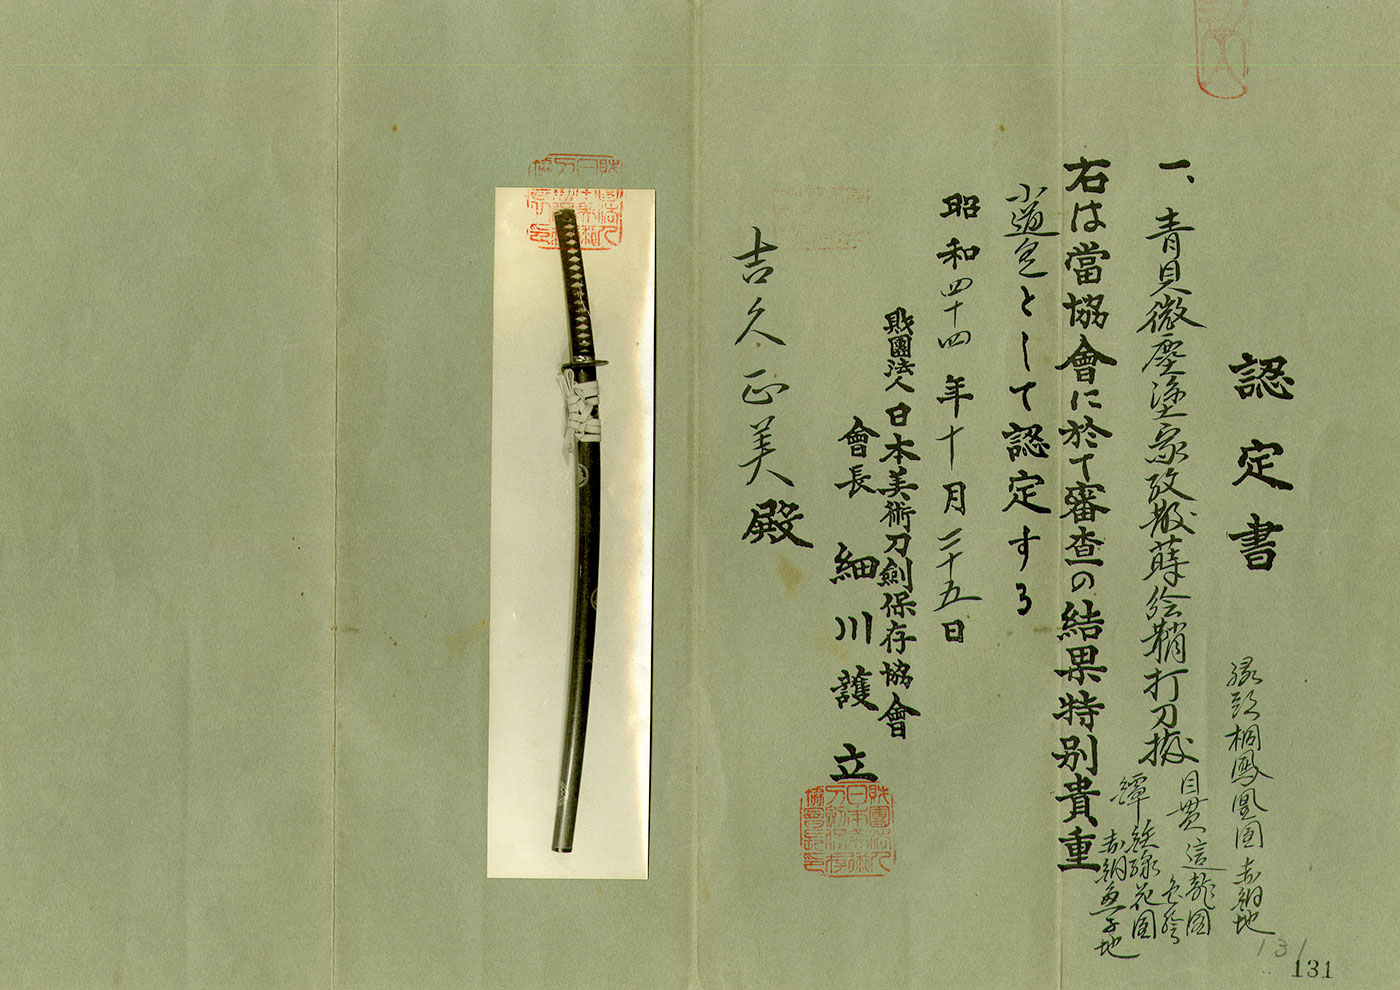 認定書
一、青貝微塵塗家紋散蒔絵鞘打刀拵
縁頭桐鳳凰図 赤銅地
目貫 這龍図 色絵
鐔 鉄 花図
赤銅魚子地
右は當協會に於て審査の結果特別貴重
小道具として認定する
昭和四十四年十月二十五日
財團法人日本美術刀劍保存協會
會長 細川護立
吉久正美殿
財團法人日本美術刀劍保存協會長之印
131
131